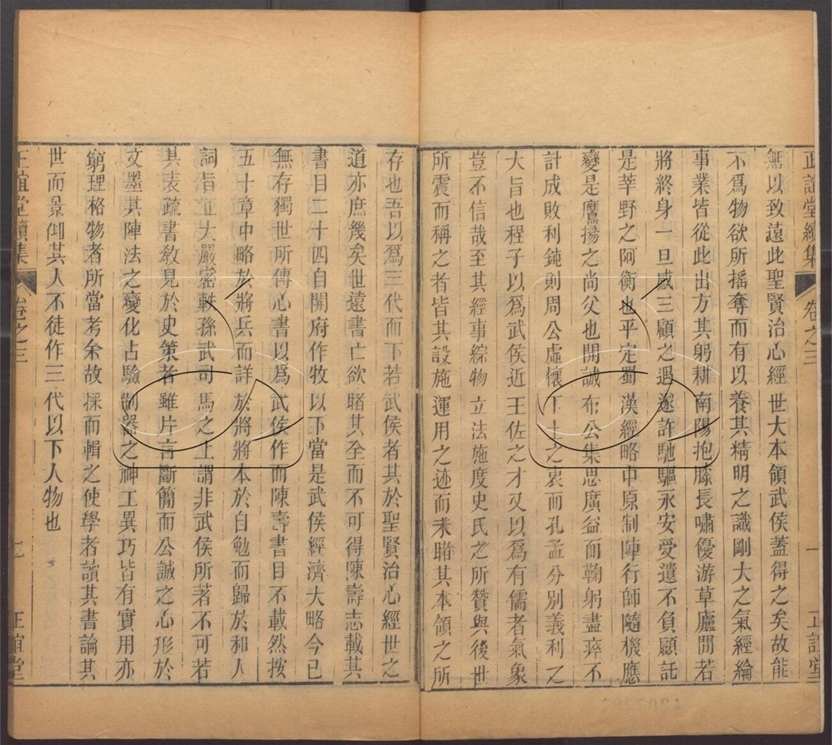 正誼堂續集
卷之三
正誼堂
無以致遠此聖賢治心經世大本領武侯蓋得之矣故能
不爲物欲所搖奪而有以養其精明之識剛大之氣經綸
事業皆從此出方其躬耕南陽抱膝長嘯優游草廬閒若
將終身一旦感三顧之遇遂許馳驅永安受遺不負顧託
是莘野之阿衡也平定蜀漢經略中原制陣行師隨機應
變是鷹揚之尚父也開誠布公集思廣益而鞠躬盡瘁不
計成敗利鈍則周公虛懷下士之衷而孔孟分別義利之
大旨也程子以爲武侯近王佐之才又以爲有儒者氣象
豈不信哉至其經事綜物立法施度史氏之所贊與後世
所震而稱之者皆其設施運用之迹而未睹其本領之所
存也吾以爲三代而下若武侯者其於聖賢治心經世之
道亦庶幾矣世遠書亡欲睹其全而不可得陳壽志載其
書目二十四自開府作牧以下當是武侯經濟大略今已
無存獨世所傳心書以爲武侯作而陳壽書目不載然按
五十章中略於將兵而詳於將將本於自勉而歸於和人
詞旨正大嚴密軼孫武司馬之上謂非武侯所著不可若
其表疏書敎見於史策者雖片言斷簡而公誠之心形於
文墨其陣法之變化占驗制器之神工異巧皆有實用亦
窮理格物者所當考余故採而輯之使學者讀其書論其
世而景仰其人不徒作三代以下人物也
正誼堂續集
卷之三
正誼堂